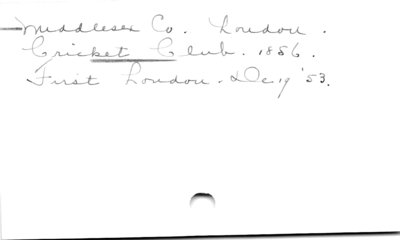 Middlesex Co. London.
Cricket Club. 1856.
First London. Dec 19 '53.